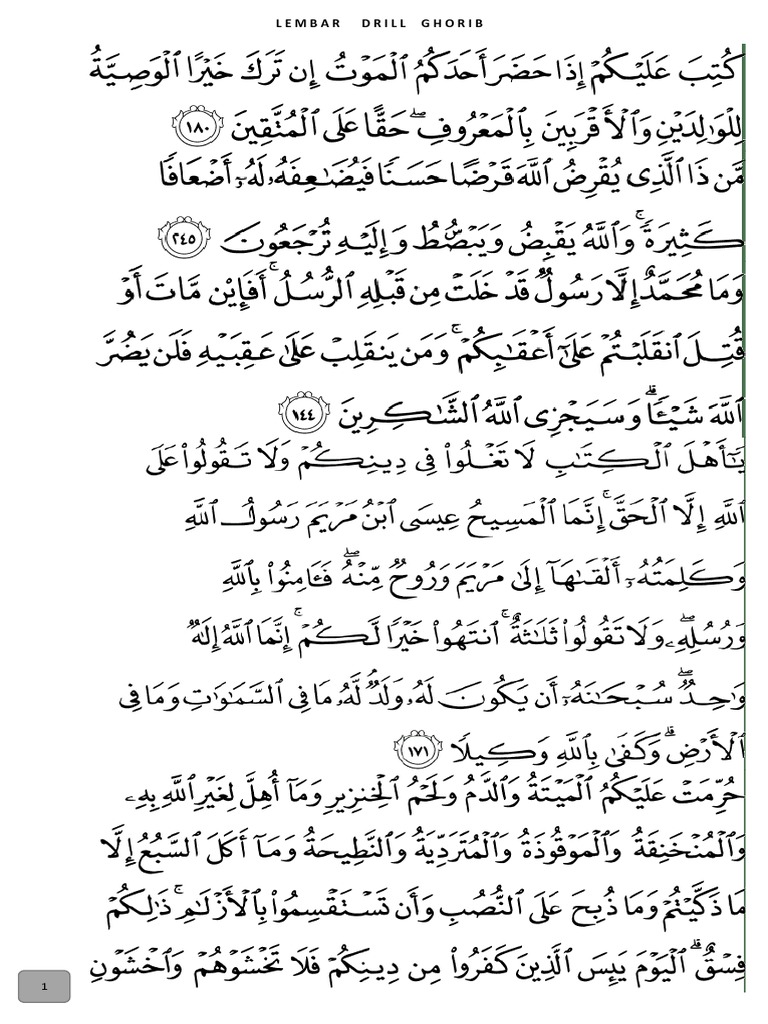 LEMBAR DRILL GHORIB
كُتِبَ عَلَيْكُمْ إِذَا حَضَرَ أَحَدَكُمُ ٱلْمَوْتُ إِن تَرَكَ خَيْرًا ٱلْوَصِيَّةُ
لِلْوَٰلِدَيْنِ وَٱلْأَقْرَبِينَ بِٱلْمَعْرُوفِ ۖ حَقًّا عَلَى ٱلْمُتَّقِينَ ١٨٠
مَّن ذَا ٱلَّذِى يُقْرِضُ ٱللَّهَ قَرْضًا حَسَنًا فَيُضَٰعِفَهُۥ لَهُۥٓ أَضْعَافًا
كَثِيرَةً ۚ وَٱللَّهُ يَقْبِضُ وَيَبْصُۜطُ وَإِلَيْهِ تُرْجَعُونَ ٢٤٥
وَمَا مُحَمَّدٌ إِلَّا رَسُولٌ قَدْ خَلَتْ مِن قَبْلِهِ ٱلرُّسُلُ ۚ أَفَإِي۟ن مَّاتَ أَوْ
قُتِلَ ٱنقَلَبْتُمْ عَلَىٰٓ أَعْقَٰبِكُمْ ۚ وَمَن يَنقَلِبْ عَلَىٰ عَقِبَيْهِ فَلَن يَضُرَّ
ٱللَّهَ شَيْـًٔا ۗ وَسَيَجْزِى ٱللَّهُ ٱلشَّٰكِرِينَ ١٤٤
يَٰٓأَهْلَ ٱلْكِتَٰبِ لَا تَغْلُوا۟ فِى دِينِكُمْ وَلَا تَقُولُوا۟ عَلَى
ٱللَّهِ إِلَّا ٱلْحَقَّ ۚ إِنَّمَا ٱلْمَسِيحُ عِيسَى ٱبْنُ مَرْيَمَ رَسُولُ ٱللَّهِ
وَكَلِمَتُهُۥٓ أَلْقَىٰهَآ إِلَىٰ مَرْيَمَ وَرُوحٌ مِّنْهُ ۖ فَـَٔامِنُوا۟ بِٱللَّهِ
وَرُسُلِهِۦ ۖ وَلَا تَقُولُوا۟ ثَلَٰثَةٌ ۚ ٱنتَهُوا۟ خَيْرًا لَّكُمْ ۚ إِنَّمَا ٱللَّهُ إِلَٰهٌ
وَٰحِدٌ ۖ سُبْحَٰنَهُۥٓ أَن يَكُونَ لَهُۥ وَلَدٌ ۘ لَّهُۥ مَا فِى ٱلسَّمَٰوَٰتِ وَمَا فِى
ٱلْأَرْضِ ۗ وَكَفَىٰ بِٱللَّهِ وَكِيلًا ١٧١
حُرِّمَتْ عَلَيْكُمُ ٱلْمَيْتَةُ وَٱلدَّمُ وَلَحْمُ ٱلْخِنزِيرِ وَمَآ أُهِلَّ لِغَيْرِ ٱللَّهِ بِهِۦ
وَٱلْمُنْخَنِقَةُ وَٱلْمَوْقُوذَةُ وَٱلْمُتَرَدِّيَةُ وَٱلنَّطِيحَةُ وَمَآ أَكَلَ ٱلسَّبُعُ إِلَّا
مَا ذَكَّيْتُمْ وَمَا ذُبِحَ عَلَى ٱلنُّصُبِ وَأَن تَسْتَقْسِمُوا۟ بِٱلْأَزْلَٰمِ ۚ ذَٰلِكُمْ
فِسْقٌ ۗ ٱلْيَوْمَ يَئِسَ ٱلَّذِينَ كَفَرُوا۟ مِن دِينِكُمْ فَلَا تَخْشَوْهُمْ وَٱخْشَوْنِ
1